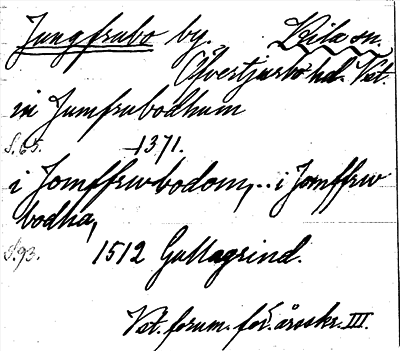 Jungfrubo by. Kila sn.
Övertjurbo hd. Vst.
in Jumfrabodhum
S. 65. 1371.
i Jomffrwbodom,.. i Jomffrw
bodha,
S. 93. 1512 Gullagrind.
Vst. fornm. för. årsskr. III.